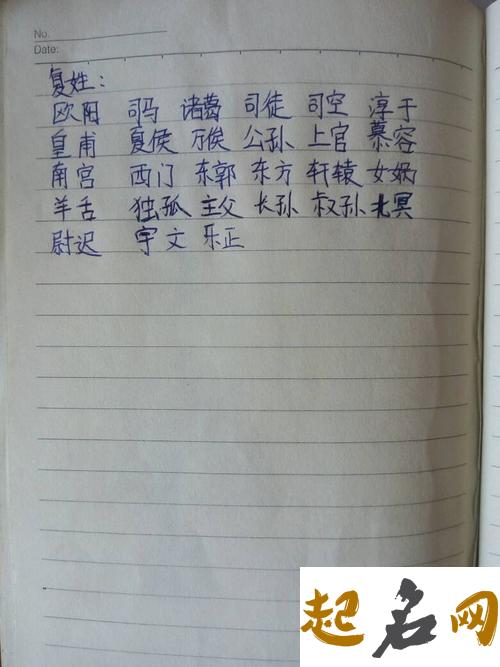 No.
Date:
复姓：
欧阳 司马 诸葛 司徒 司空 淳于
皇甫 夏侯 万俟 公孙 上官 慕容
南宫 西门 东郭 东方 轩辕 女娲
羊舌 独孤 主父 长孙 叔孙 北冥
尉迟 宇文 乐正
起名网